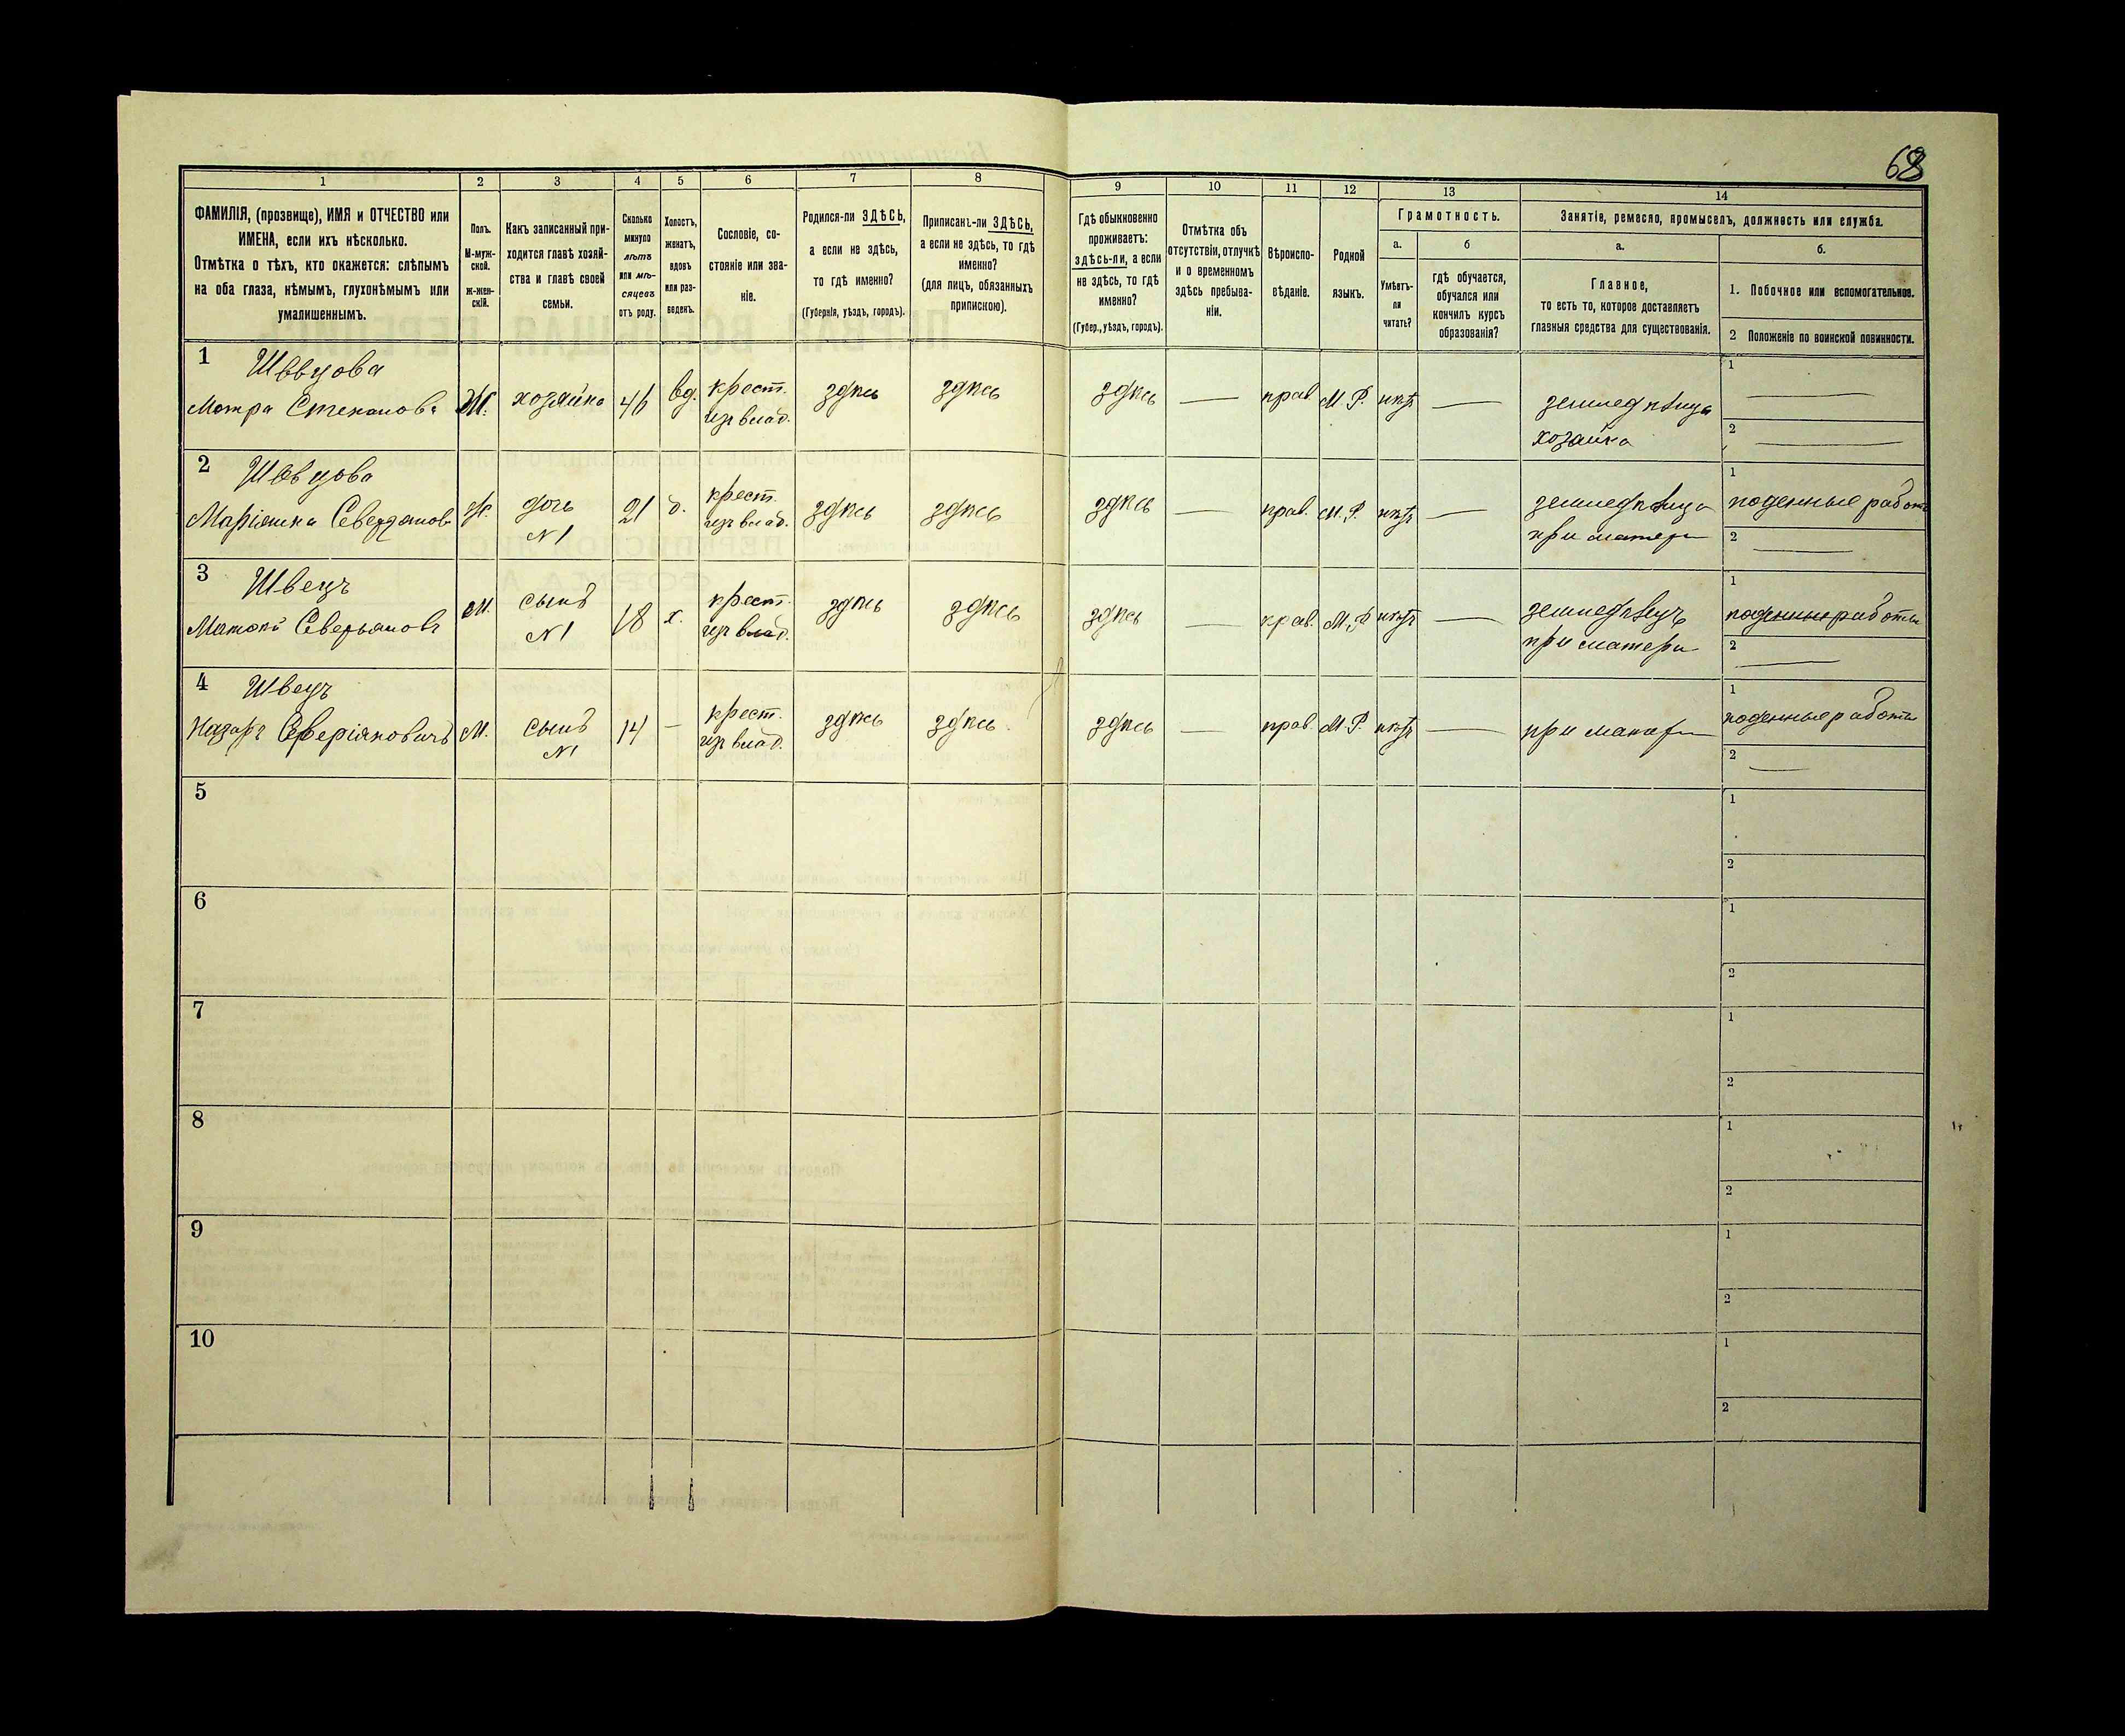 68
1 2 3 4 5 6 7 8 9 10 11 12 13 14
ФАМИЛІЯ, (прозвище), ИМЯ и ОТЧЕСТВО или
ИМЕНА, если ихъ нѣсколько.
Отмѣтка о тѣхъ, кто окажется: слѣпымъ
на оба глаза, нѣмымъ, глухонѣмымъ или
умалишеннымъ.
Полъ.
М-муж-
ской.
Ж-жен-
скій.
Какъ записанный при-
ходится главѣ хозяй-
ства и главѣ своей
семьи.
Сколько
минуло
лѣтъ
или мѣ-
сяцевъ
отъ роду.
Холостъ,
женатъ,
вдовъ
или раз-
веденъ.
Сословіе, со-
стояніе или зва-
ніе.
Родился-ли ЗДѢСЬ,
а если не здѣсь,
то гдѣ именно?
(Губернія, уѣздъ, городъ).
Приписанъ-ли ЗДѢСЬ,
а если не здѣсь, то гдѣ
именно?
(для лицъ, обязанныхъ
припискою).
Гдѣ обыкновенно
проживаетъ:
здѣсь-ли, а если
не здѣсь, то гдѣ
именно?
(Губер., уѣздъ, городъ).
Отмѣтка объ
отсутствіи, отлучкѣ
и о временномъ
здѣсь пребыва-
ніи.
Вѣроиспо-
вѣданіе.
Родной
языкъ.
Грамотность.
а.
Умѣетъ-
ли
читать?
б
гдѣ обучается,
обучался или
кончилъ курсъ
образованія?
Занятіе, ремесло, промыселъ, должность или служба.
а.
Главное,
то есть то, которое доставляетъ
главныя средства для существованія.
б.
1. Побочное или вспомогательное.
2 Положеніе по воинской повинности.
1 Швецова
Мотра Степанова Ж. хозяйка 46 вд. крест. изъ влад. здѣсь здѣсь здѣсь — прав. М.Р. нѣтъ — земледѣлица хозяйка 1 — 2 —
2 Швецова
Маріянна Северьянова Ж. дочь N1 21 д. крест. изъ влад. здѣсь здѣсь здѣсь — прав. М.Р. нѣтъ — земледѣлица при матери 1 поденные работы 2 —
3 Швецъ
Северьяновъ М. сынъ N1 18 х. крест. изъ влад. здѣсь здѣсь здѣсь — прав. М.Р. нѣтъ — земледѣлецъ при матери 1 поденные работы 2 —
4 Швецъ
Назаръ Северіяновичъ М. сынъ N1 14 — крест. изъ влад. здѣсь здѣсь здѣсь — прав. М.Р. нѣтъ — при матери 1 поденные работы 2 —
5 1 2
6 1 2
7 1 2
8 1 2
9 1 2
10 1 2